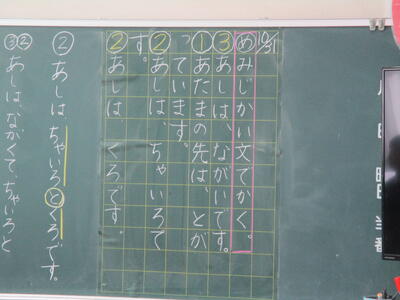 10/31
めみじかい文でかく。
③あしは、ながいです。
①あたまの先は、とが
っています。
②あしは、ちゃいろで
す。
②あしは くろです。
②あしは ちゃいろとくろです。
③②あしは、ながくて、ちゃいろと